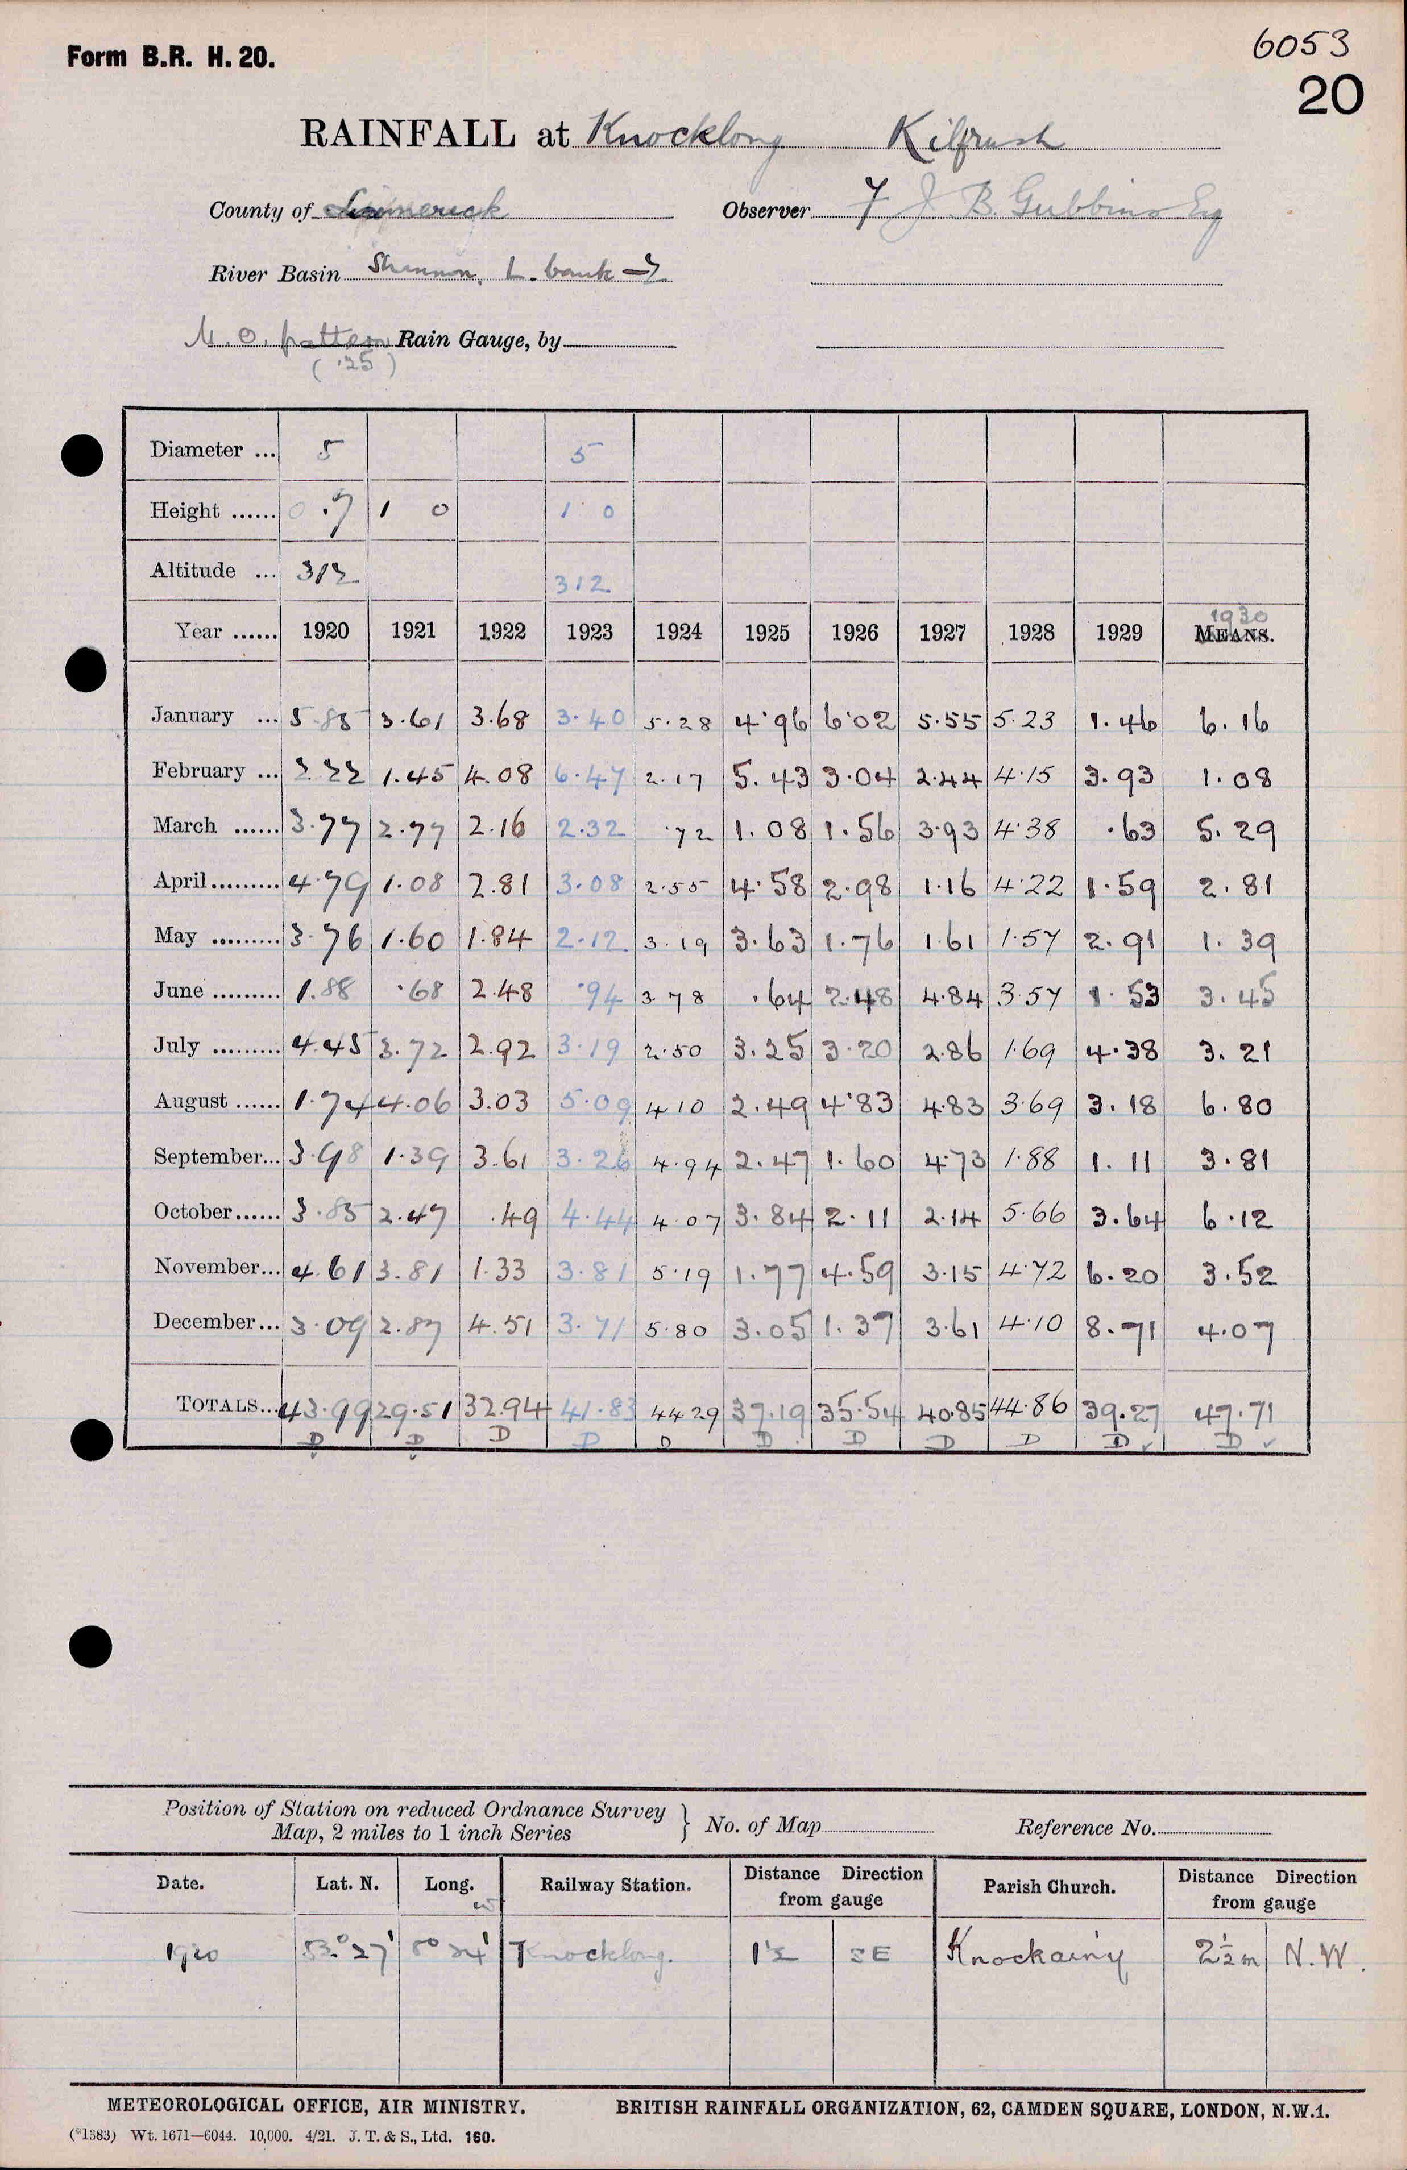 Form B.R. H. 20.
6053
20
RAINFALL at Knocklong Kilfrush
County of Limerick Observer J. B. Gubbins Esq
River Basin Shannon, L. bank
M. O. pattern Rain Gauge, by
(.25)
Diameter ... 5 5
Height ...... 0 .7 1 0 1 0
Altitude ... 312 312
1930
Year ...... 1920 1921 1922 1923 1924 1925 1926 1927 1928 1929 MEANS.
January ... 5.85 3.61 3.68 3.40 5.28 4.96 6.02 5.55 5.23 1.46 6.16
February ... 2.22 1.45 4.08 6.47 2.17 5.43 3.04 2.44 4.15 3.93 1.08
March ...... 3.77 2.77 2.16 2.32 .72 1.08 1.56 3.93 4.38 .63 5.29
April......... 4.79 1.08 2.81 3.08 2.55 4.58 2.98 1.16 4.22 1.59 2.81
May ......... 3.76 1.60 1.84 2.12 3.19 3.63 1.76 1.61 1.57 2.91 1.39
June ......... 1.88 .68 2.48 .94 3 78 .64 2.48 4.84 3.57 1.53 3.45
July ......... 4.45 3.72 2.92 3.19 2.50 3.25 3.20 2.86 1.69 4.38 3.21
August ...... 1.74 4.06 3.03 5.09 4 10 2.49 4.83 4.83 3.69 3.18 6.80
September... 3.98 1.39 3.61 3.26 4.94 2.47 1.60 4.73 1.88 1.11 3.81
October...... 3.85 2.47 .49 4.44 4.07 3.84 2.11 2.14 5.66 3.64 6.12
November... 4.61 3.81 1.33 3.81 5.19 1.77 4.59 3.15 4.72 6.20 3.52
December... 3.09 2.87 4.51 3.71 5.80 3.05 1.37 3.61 4.10 8.71 4.07
TOTALS... 43.99 29.51 32.94 41.83 44 29 37.19 35.54 40.85 44.86 39.27 47.71
D D D D D D D D D D ✓ D ✓
Position of Station on reduced Ordnance Survey
Map, 2 miles to 1 inch Series } No. of Map Reference No.
Date. Lat. N. Long. W Railway Station. Distance Direction from gauge Parish Church. Distance Direction from gauge
1920 53° 27' 8° 24' Knocklong. 1½ SE Knockainy 2½ m N.W.
METEOROLOGICAL OFFICE, AIR MINISTRY. BRITISH RAINFALL ORGANIZATION, 62, CAMDEN SQUARE, LONDON, N.W.1.
(*1383) Wt. 1671—6044. 10,000. 4/21. J. T. & S., Ltd. 160.